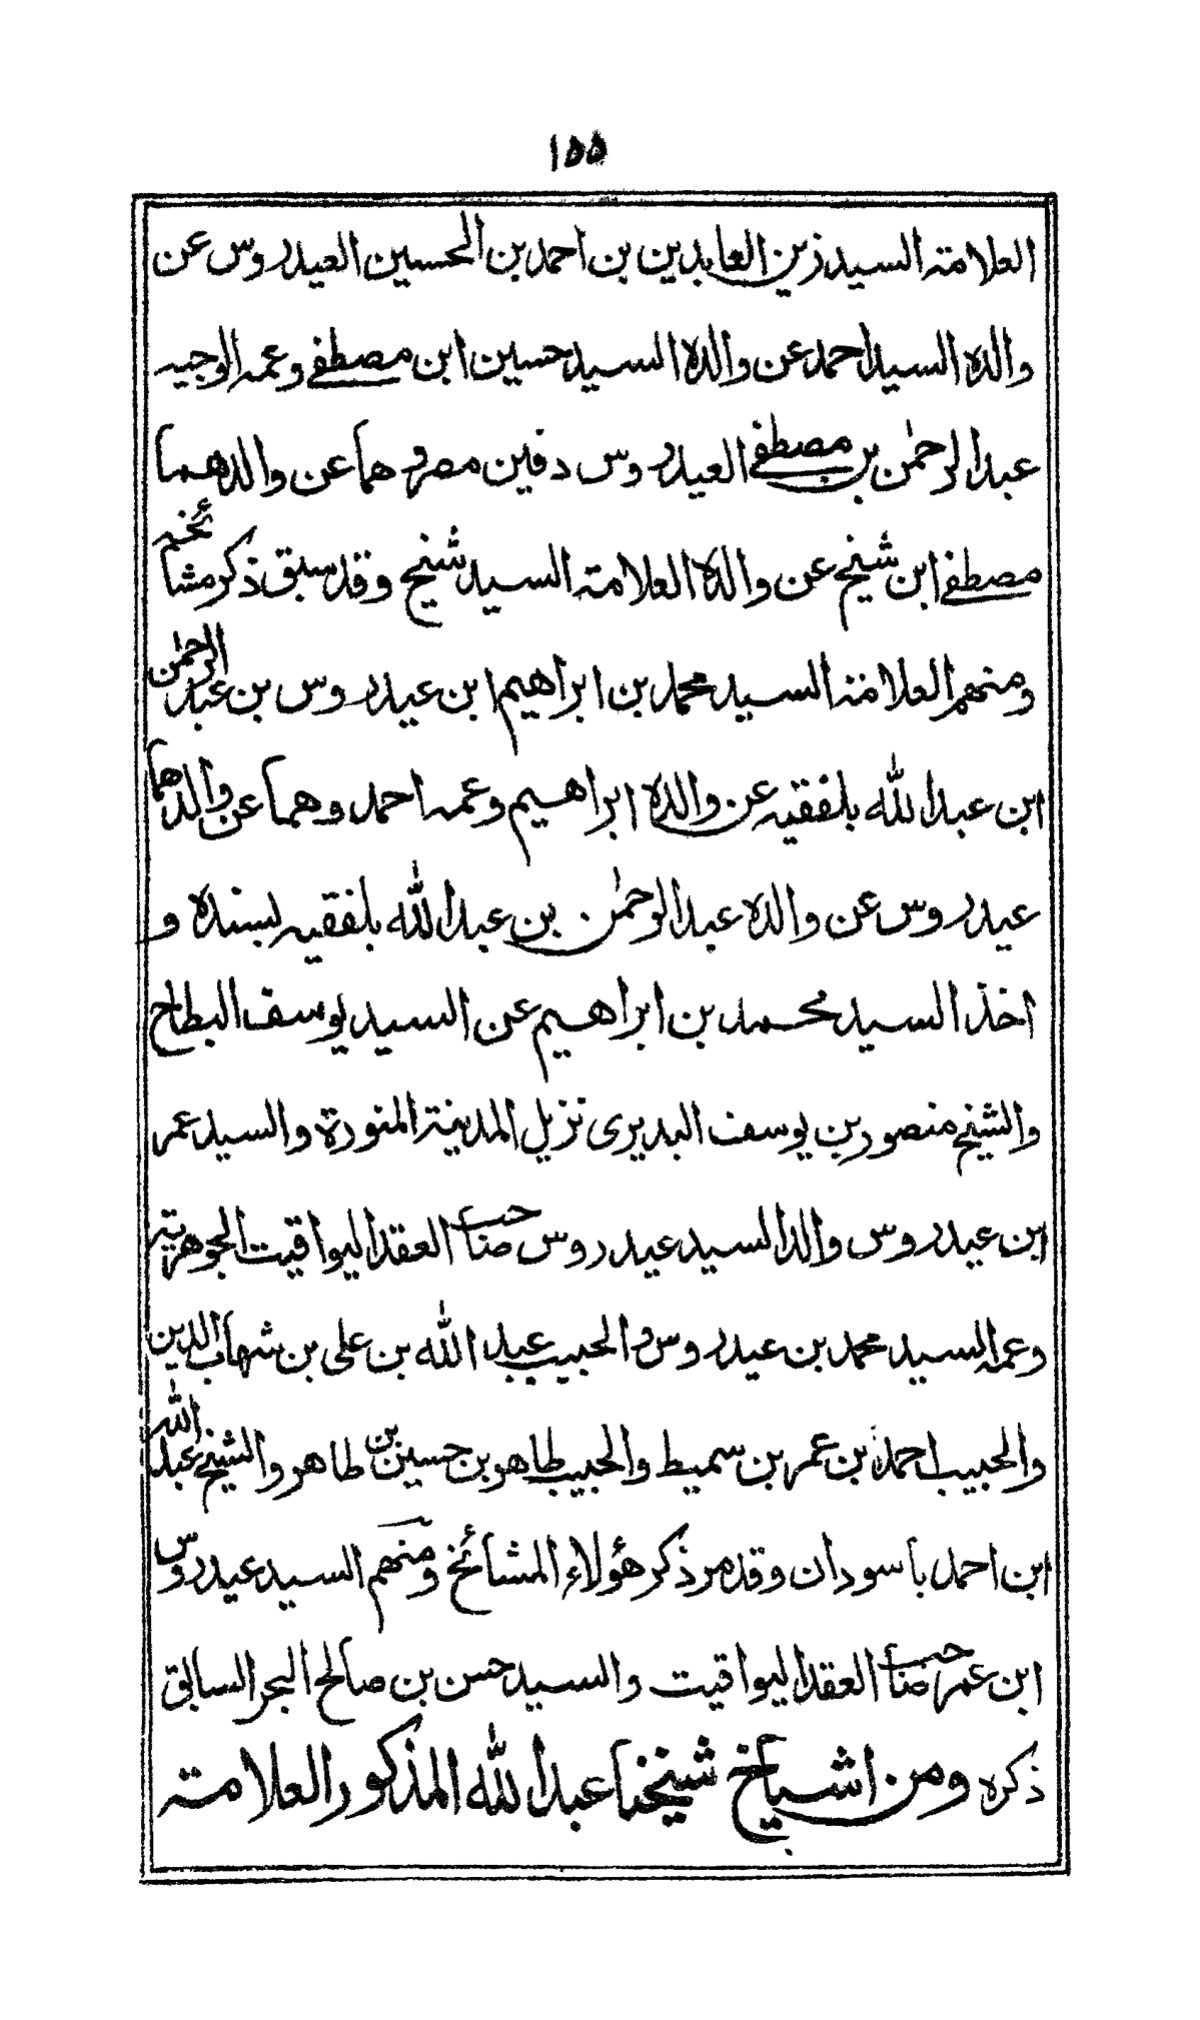 ١٥٥
العلامة السيد زين العابدين بن احمد بن الحسين العيدروس عن
والده السيد احمد عن والده السيد حسين ابن مصطفى وعمه الوجيه
عبد الرحمن بن مصطفى العيدروس دفين مصر وهما عن والدهما
مصطفى ابن شيخ عن والده العلامة السيد شيخ وقد سبق ذكر مشائخه
ومنهم العلامة السيد محمد بن ابراهيم ابن عيدروس بن عبد الرحمن
ابن عبد الله بلفقيه عن والده ابراهيم وعمه احمد وهما عن والدهما
عيدروس عن والده عبد الرحمن بن عبد الله بلفقيه بسنده و
اخذ السيد محمد بن ابراهيم عن السيد يوسف البطاح
والشيخ منصور بن يوسف البديرى نزيل المدينة المنورة والسيد عمر
ابن عيدروس والد السيد عيدروس صاحب العقد اليواقيت الجوهرية
وعمه السيد محمد بن عيدروس والحبيب عبد الله بن على بن شهاب الدين
والحبيب احمد بن عمر بن سميط والحبيب طاهر بن حسين بن طاهر والشيخ عبد الله
ابن احمد باسودان وقد مر ذكر هؤلاء المشائخ ومنهم السيد عيدروس
ابن عمر صاحب العقد اليواقيت والسيد حسن بن صالح البحر السابق
ذكره ومن اشياخ شيخنا عبد الله المذكور العلامة